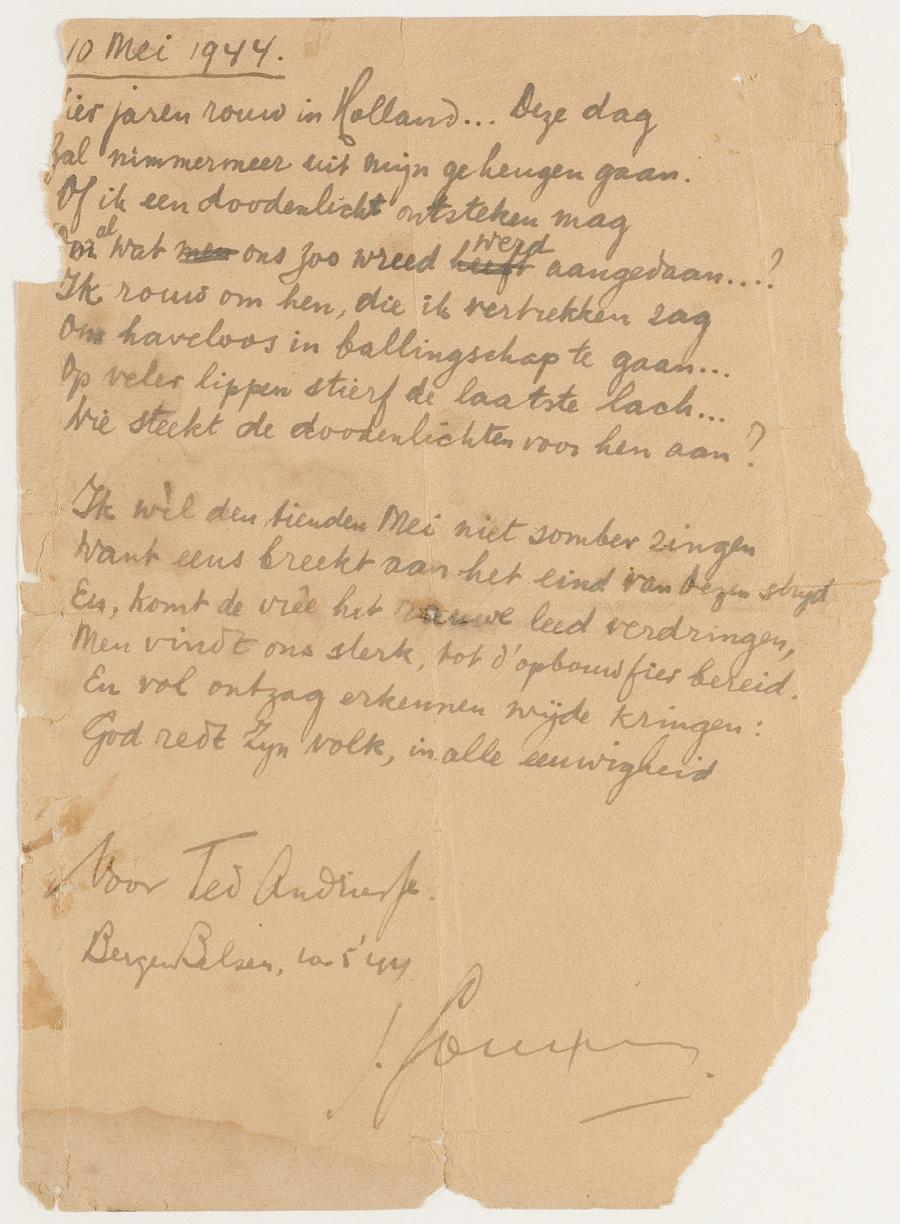 10 Mei 1944.
ier jaren rouw in Holland... Deze dag
Zal nimmermeer uit mijn geheugen gaan.
Of ik een doodenlicht ontsteken mag
Om al wat men ons zoo wreed heeft werd aangedaan...?
Ik rouw om hen, die ik vertrekken zag
Om haveloos in ballingschap te gaan...
Op veler lippen stierf de laatste lach...
Wie steekt de doodenlichten voor hen aan?
Ik wil den tienden Mei niet somber zingen
Want eens breekt aan het eind van dezen strijd
En, komt de vreê het rauwe leed verdringen,
Men vindt ons sterk, tot d'opbouw fier bereid.
En vol ontzag erkennen wijde kringen:
God redt Zijn volk, in alle eeuwigheid
Voor Ted Andriesse.
Bergen Belsen, 10 5 '44
J.